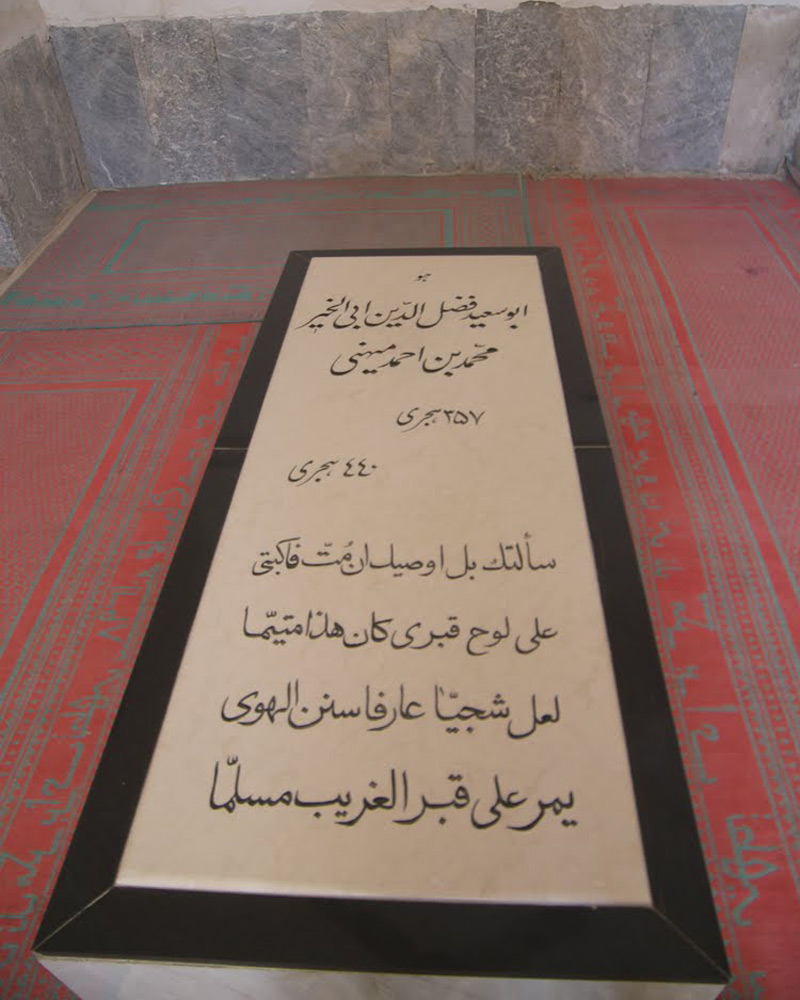 هو
ابوسعید فضل الدّین ابی الخیر
محمّد بن احمد میهنی
۳۵۷ هجری
٤٤٠ هجری
سألتك بل اوصيك ان مُتّ فاكبتى
على لوح قبرى كان هذا متيّما
لعل شجيّا عارفا سنن الهوى
يمر على قبر الغريب مسلّما